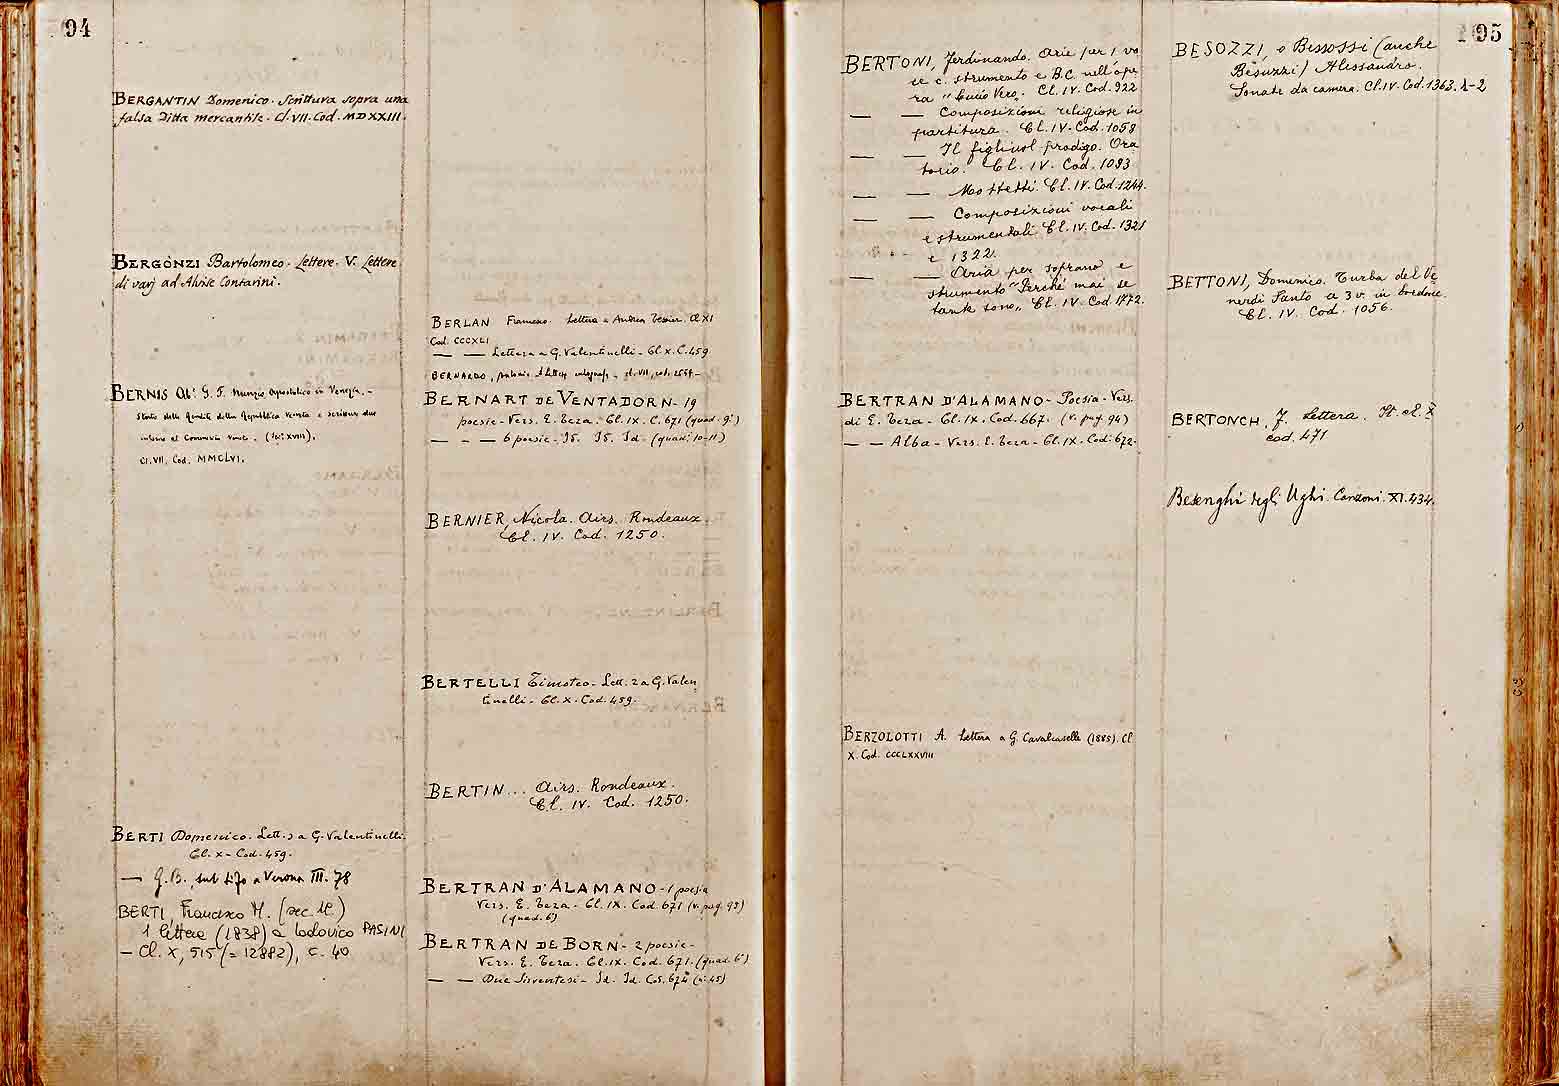 94
BERGANTIN Domenico. Scrittura sopra una
falsa Ditta mercantile. Cl. VII. Cod. MDXXIII.
BERGONZI Bartolomeo. Lettere. V. Lettere
di varj ad Alvise Contarini.
BERNIS Ab.e G. F. Nunzio Apostolico in Venezia. -
Stato delle Rendite della Repubblica Veneta e
. (Sec. XVIII).
Cl. VII. Cod. MMCLVI.
BERTI Domenico. Lett. 2 a G. Valentinelli.
Cl. X - Cod. 459.
— G. B., sul Tifo a Verona III. 78
BERTI, Francesco M. (sec. XIX)
1 lettera (1838) a Lodovico PASINI
— Cl. X, 515 (= 12882), c. 40
BERLAN Francesco. Lettera a Andrea Tessier. Cl XI
Cod. CCCXLI
— — Lettera a G. Valentinelli - Cl. X. C. 459.
BERNARDO, . cl. VII, cod. 2554 -
BERNART DE VENTADORN - 19
poesie - Vers. E. Teza. Cl. IX. C. 671 (quad. 9°)
— - — 6 poesie - Id. Id. Id - (quad. 10-11)
BERNIER, Nicola. Airs. Rondeaux.
Cl. IV. Cod. 1250.
BERTELLI Timoteo - Lett. 2 a G. Valen
tinelli - Cl. X - Cod. 459.
BERTIN... Airs. Rondeaux.
Cl. IV. Cod. 1250.
BERTRAN D'ALAMANO - 1 poesia
Vers. E. Teza - Cl. IX. Cod. 671 (v. pag. 95)
(quad. 6°)
BERTRAN DE BORN - 2 poesie -
Vers. E. Teza. Cl. IX. Cod. 671. (quad. 6°)
— — Due Sirventesi - Id. Id. Cod. 672 (n. 45)
95
BERTONI, Ferdinando. Arie per 1 vo
ce c. strumento e B.C. nell'ope
ra "Lucio Vero". Cl. IV. Cod. 922
— — Composizioni religiose in
partitura. Cl. IV. Cod. 1058
— — Il figliuol prodigo. Ora
torio. Cl. IV. Cod. 1093
— — Mottetti. Cl. IV. Cod. 1244.
— — Composizioni vocali
e strumentali. Cl. IV. Cod. 1321
e 1322.
— — Aria per soprano e
strumento "Perchè mai se
tante sono". Cl. IV. Cod. 1772.
BERTRAN D'ALAMANO - Poesia - Vers.
di E. Teza - Cl. IX. Cod. 667. (v. pag. 94)
— — Alba - Vers. E. Teza - Cl. IX - Cod. 672.
BERZOLOTTI A. Lettera a G. Cavalcaselle (1885). Cl
X. Cod. CCCLXXVIII
BESOZZI, o Bessossi (anche
Besuzzi) Alessandro.
Sonate da camera. Cl. IV. Cod. 1363. 1-2
BETTONI, Domenico. Turba del Ve
nerdi Santo a 3 v. in bordone.
Cl. IV. Cod. 1056.
BERTONCH, J. Lettera. It. cl. X
cod. 471
Besenghi degli Ughi. Canzoni. XI. 434.